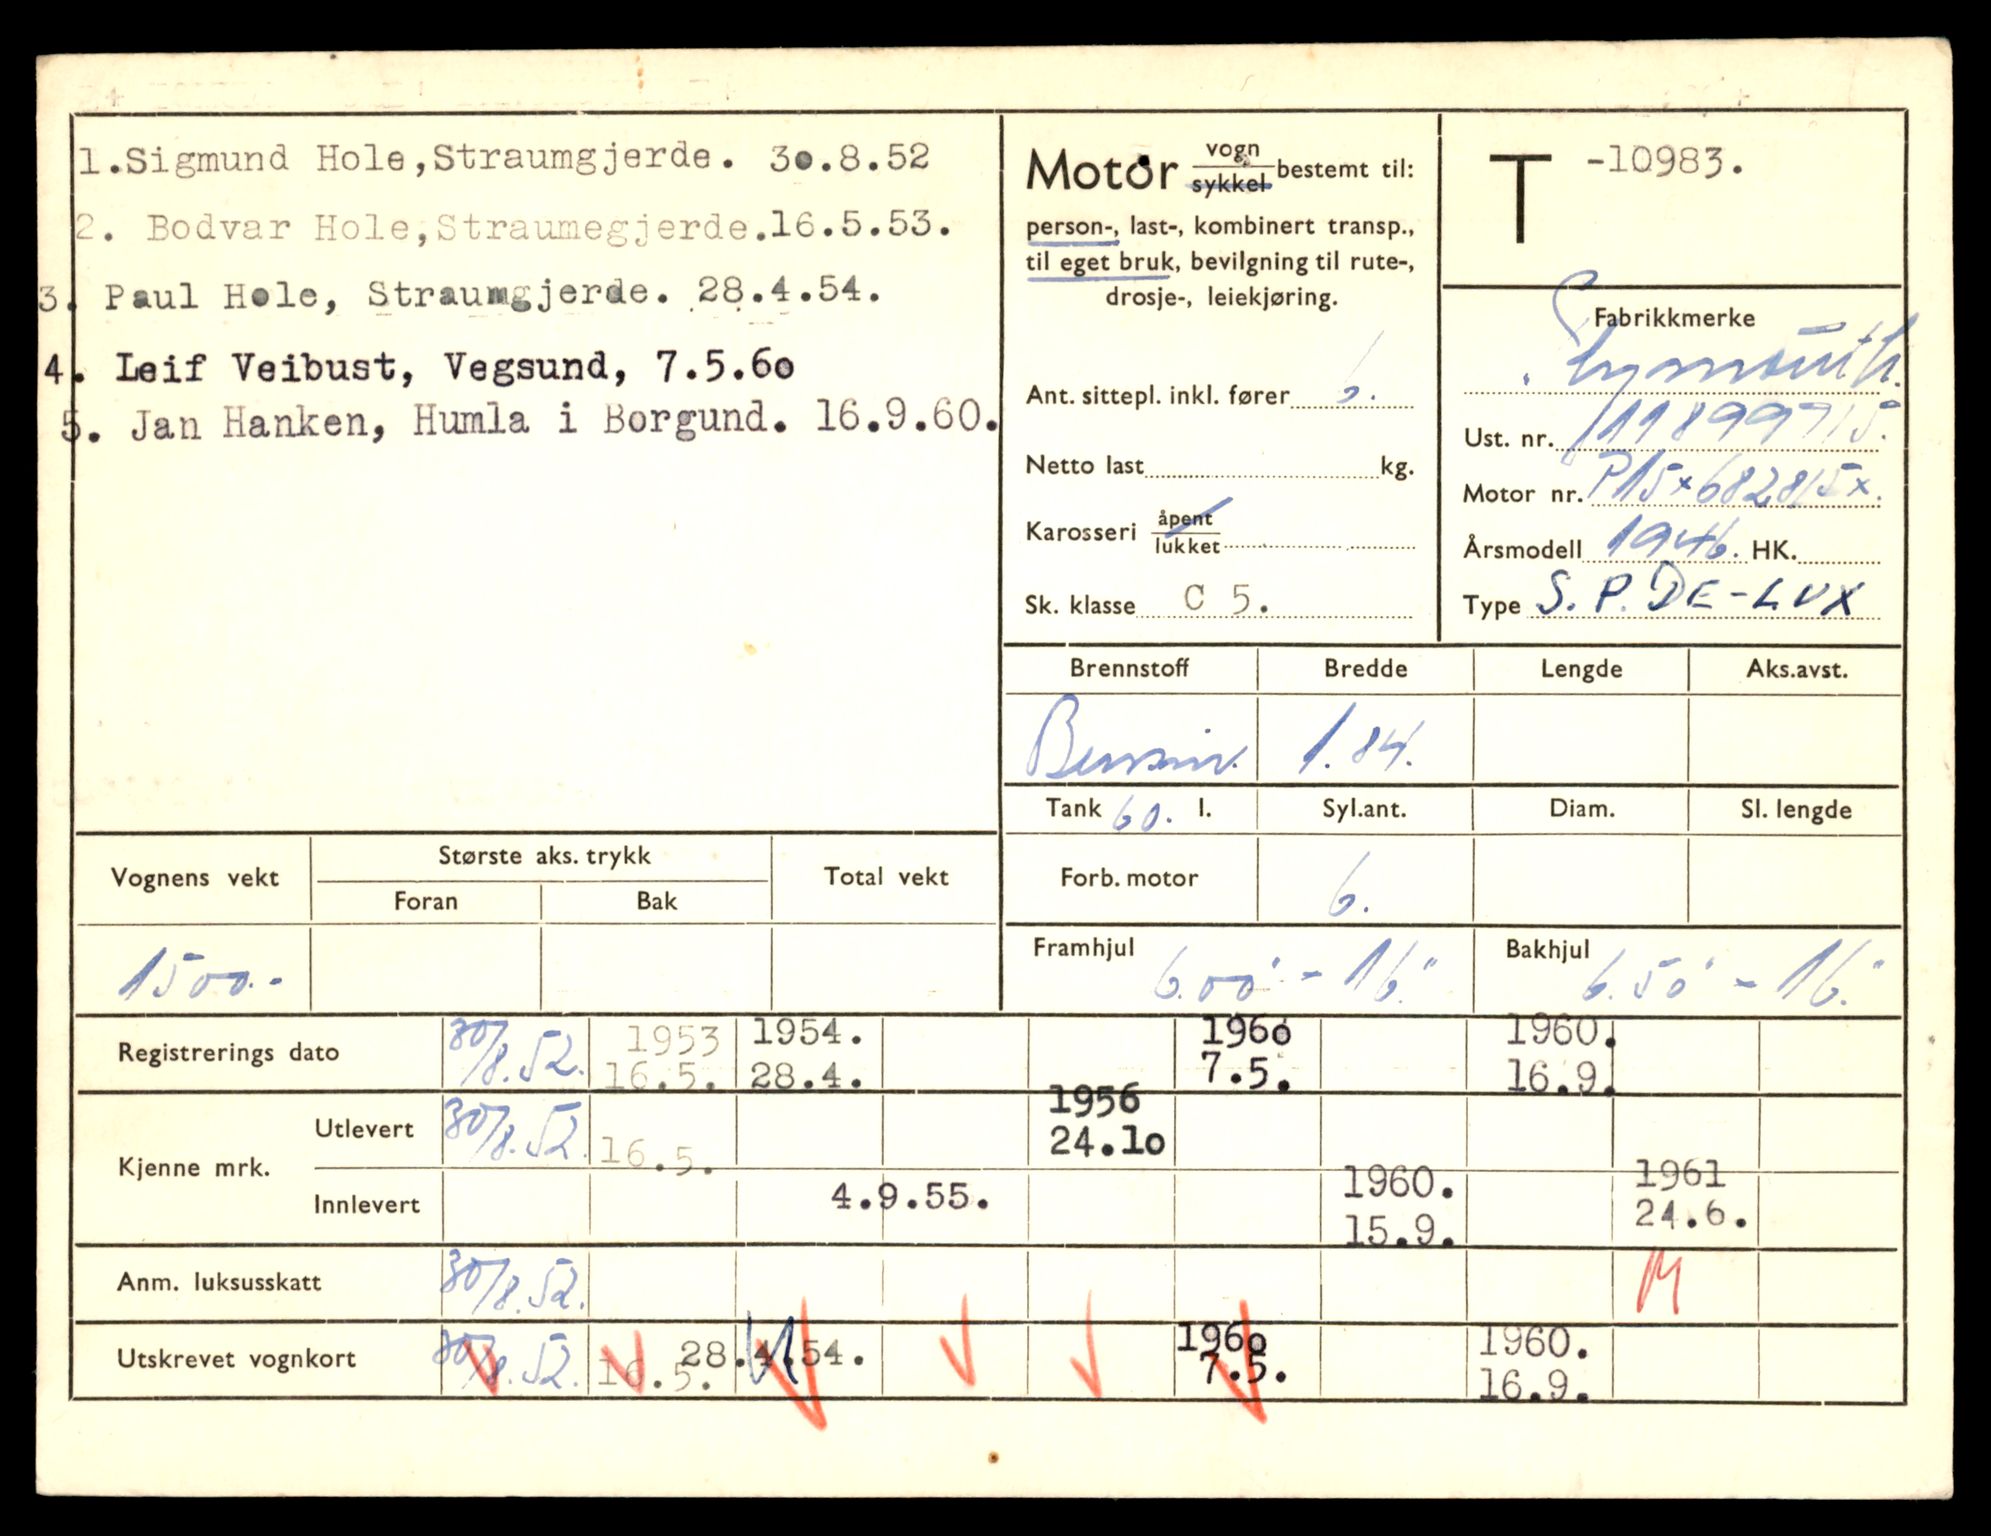 1.Sigmund Hole,Straumgjerde. 30.8.52
2. Bodvar Hole,Straumegjerde.16.5.53.
3. Paul Hole, Straumgjerde. 28.4.54.
4. Leif Veibust, Vegsund, 7.5.60
5. Jan Hanken, Humla i Borgund. 16.9.60.
Motor vogn
sykkel bestemt til:
person-, last-, kombinert transp.,
til eget bruk, bevilgning til rute-,
drosje-, leiekjøring.
Ant. sittepl. inkl. fører 6.
Netto last kg.
Karosseri åpent
lukket
Sk. klasse C 5.
T -10983.
Fabrikkmerke
Plymouth.
Ust. nr. 11899715.
Motor nr. P15x682815x.
Årsmodell 1946. HK.
Type S.P.DE-LUX
Brennstoff Bredde Lengde Aks.avst.
Bensin. 1.84.
Tank 60. l. Syl.ant. Diam. Sl. lengde
Forb. motor 6.
Framhjul 6.00" - 16." Bakhjul 6.50" - 16."
Vognens vekt Største aks. trykk Total vekt
Foran Bak
1500.-
Registrerings dato 30/8.52. 1953 1954. 1960 1960.
16.5. 28.4. 7.5. 16.9.
Kjenne mrk. Utlevert 30/8.52. 16.5. 1956
24.10
Innlevert 4.9.55. 1960. 1961
15.9. 24.6.
Anm. luksusskatt 30/8.52. M
Utskrevet vognkort 30/8.52. 16.5. 28.4.54. 1960 1960.
7.5. 16.9.